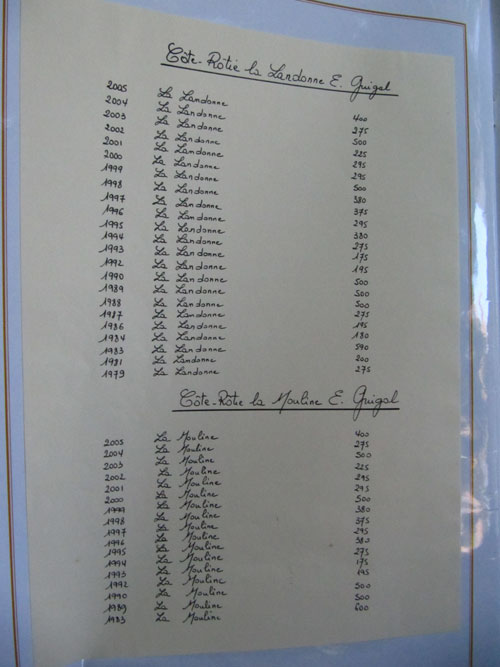 Côte-Rôtie la Landonne E. Guigal
2005 La Landonne 400
2004 La Landonne 275
2003 La Landonne 500
2002 La Landonne 225
2001 La Landonne 295
2000 La Landonne 295
1999 La Landonne 500
1998 La Landonne 380
1997 La Landonne 375
1996 La Landonne 295
1995 La Landonne 380
1994 La Landonne 275
1993 La Landonne 175
1992 La Landonne 195
1990 La Landonne 500
1989 La Landonne 500
1988 La Landonne 500
1987 La Landonne 275
1986 La Landonne 195
1984 La Landonne 180
1983 La Landonne 590
1981 La Landonne 200
1979 La Landonne 275
Côte-Rôtie la Mouline E. Guigal
2005 La Mouline 400
2004 La Mouline 275
2003 La Mouline 500
2002 La Mouline 225
2001 La Mouline 295
2000 La Mouline 295
1999 La Mouline 500
1998 La Mouline 380
1997 La Mouline 375
1996 La Mouline 295
1995 La Mouline 380
1994 La Mouline 275
1993 La Mouline 175
1992 La Mouline 195
1990 La Mouline 500
1989 La Mouline 500
1983 La Mouline 600